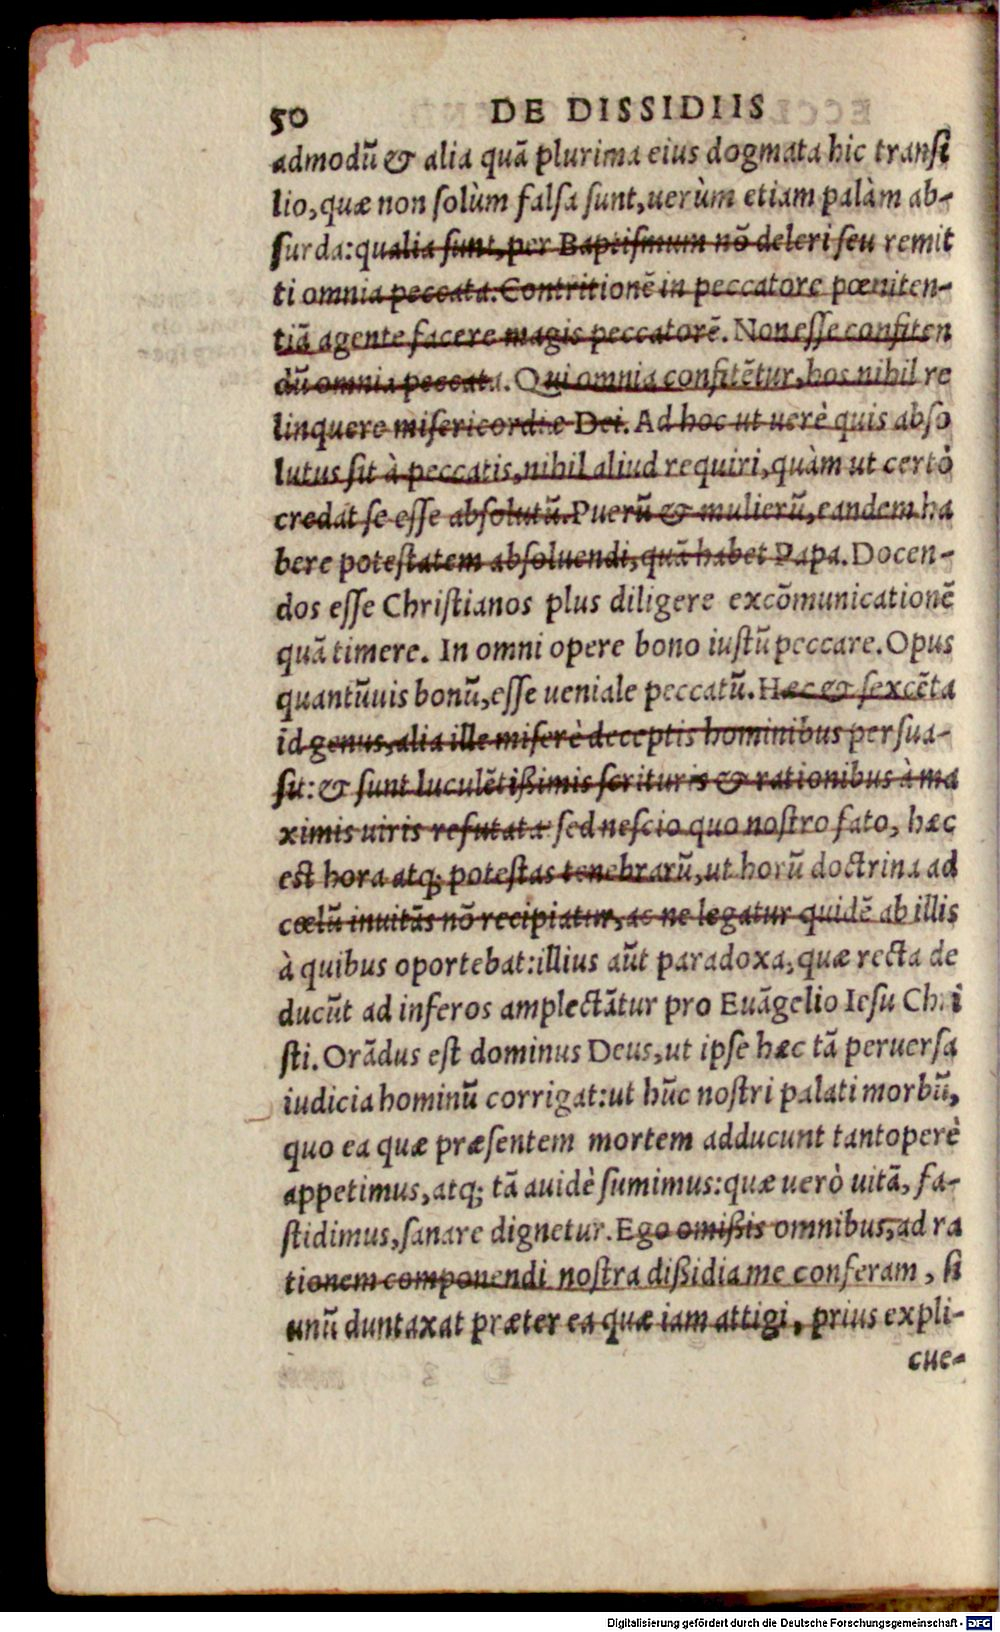 50 DE DISSIDIIS
admodū & alia quā plurima eius dogmata hic transi
lio, quæ non solùm falsa sunt, uerùm etiam palàm ab-
surda: qualia sunt, per Baptismum nō deleri seu remit
ti omnia peccata. Contritionē in peccatore pœniten-
tiā agente facere magis peccatorē. Non esse confiten
dū omnia peccata. Qui omnia confitētur, hos nihil re
linquere misericordiæ Dei. Ad hoc ut uerè quis abso
lutus sit à peccatis, nihil aliud requiri, quàm ut certò
credat se esse absolutū. Puerū & mulierū, eandem ha
bere potestatem absoluendi, quā habet Papa. Docen-
dos esse Christianos plus diligere excōmunicationē
quā timere. In omni opere bono iustū peccare. Opus
quantūuis bonū, esse ueniale peccatū. Hæc & sexcēta
id genus, alia ille miserè deceptis hominibus persua-
sit: & sunt luculētißimis scrituris & rationibus à ma
ximis uiris refutata: sed nescio quo nostro fato, hæc
est hora atq; potestas tenebrarū, ut horū doctrina ad
cœlū inuitās nō recipiatur, ac ne legatur quidē ab illis
à quibus oportebat: illius aūt paradoxa, quæ recta de
ducūt ad inferos amplectātur pro Euāgelio Iesu Chri
sti. Orādus est dominus Deus, ut ipse hæc tā peruersa
iudicia hominū corrigat: ut hūc nostri palati morbū,
quo ea quæ præsentem mortem adducunt tantoperè
appetimus, atq; tā auidè sumimus: quæ uerò uitā, fa-
stidimus, sanare dignetur. Ego omißis omnibus, ad ra
tionem componendi nostra dißidia me conferam, si
unū duntaxat præter ea quæ iam attigi, prius expli-
cue-
Digitalisierung gefördert durch die Deutsche Forschungsgemeinschaft - DFG